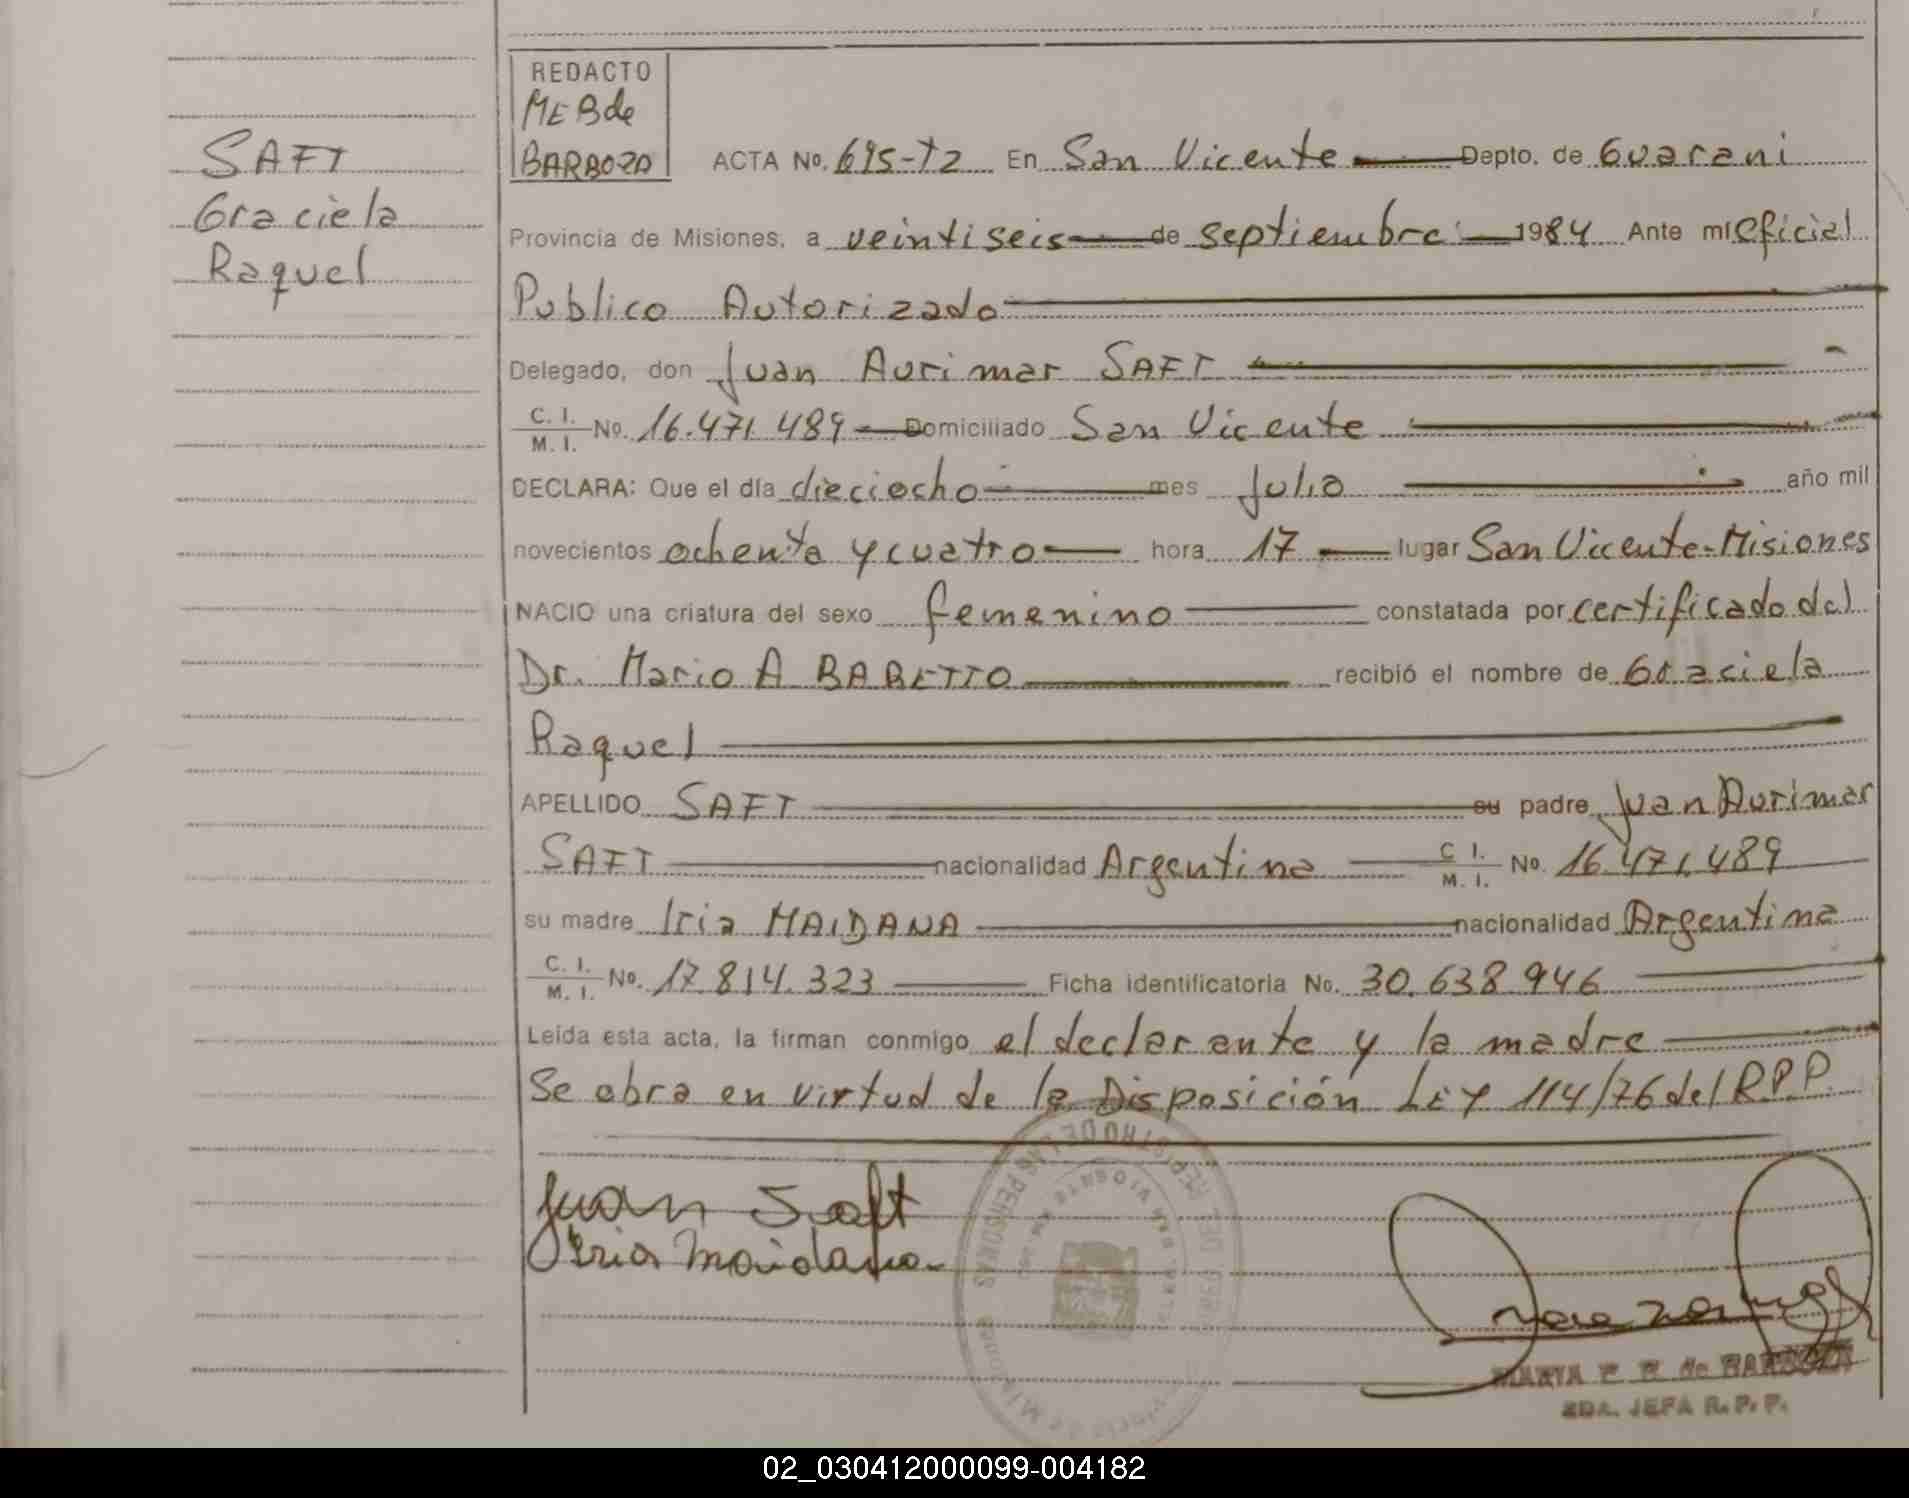 SAFT
Graciela
Raquel
REDACTO
MEBde
BARBOZA
ACTA No. 695-T2 En San Vicente Depto. de Guarani
Provincia de Misiones, a veintiseis de septiembre 1984 Ante mi Oficial
Publico Autorizado
Delegado, don Juan Aurimar SAFT
C. I. / M. I. No. 16.471.489 Domiciliado San Vicente
DECLARA: Que el día dieciocho mes Julio año mil
novecientos ochenta y cuatro hora 17 lugar San Vicente-Misiones
NACIO una criatura del sexo femenino constatada por certificado del
Dr. Mario A BARETTO recibió el nombre de Graciela
Raquel
APELLIDO SAFT su padre Juan Aurimar
SAFT nacionalidad Argentina C I. / M. I. No. 16.471.489
su madre Iria MAIDANA nacionalidad Argentina
C. I. / M. I. No. 17.814.323 Ficha identificatoria No. 30.638.946
Leída esta acta, la firman conmigo el declarante y la madre
Se obra en virtud de la Disposición LEY 114/76 del R.P.P.
Juan Saft
Iria Maidana
REGISTRO DE LAS PERSONAS
MARIA E. B. de BARBOZA
2DA. JEFA R. P. P.
02_030412000099-004182